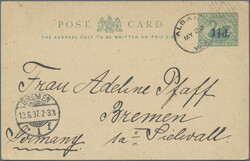 POST CARD
THE ADDRESS ONLY TO BE WRITTEN ON THIS SIDE
ALBA
MY 2
Frau Adeline Pfaff
Bremen
Germany
BREMEN
13.6.97. 2-3 N
1